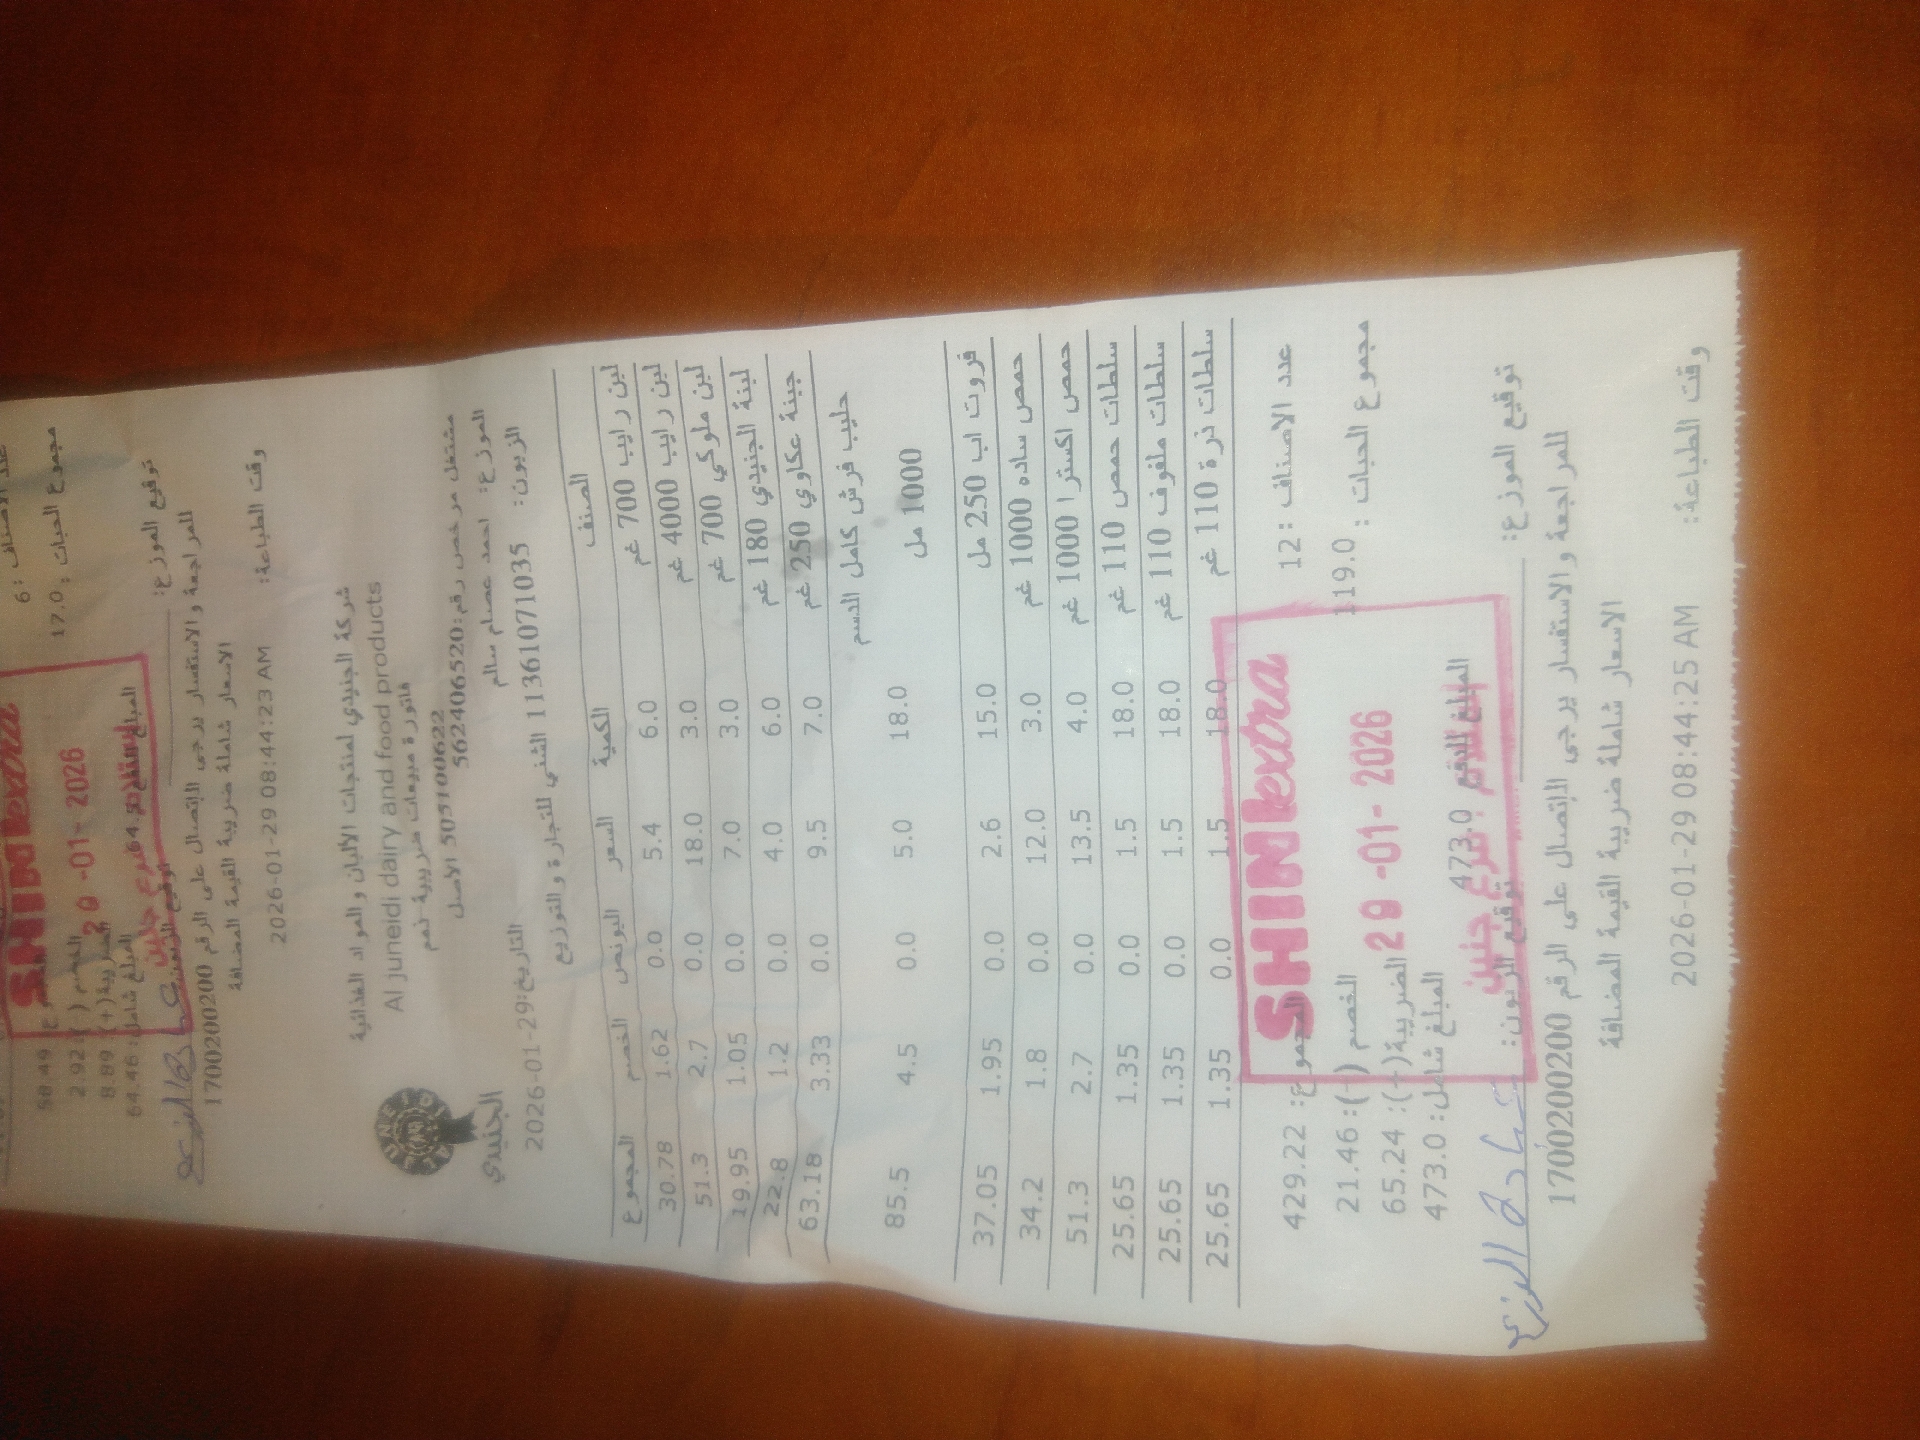 عدد الاصناف : 6
مجموع الحبات : 17.0
58.49
الخصم (-): 2.92
الضريبة(+): 8.89
المبلغ شامل: 64.46
SHINI extra
29 -01- 2026
فرع جنين
توقيع الموزع:
توقيع الزبون:
للمراجعة والاستفسار يرجى الإتصال على الرقم 1700200200
الاسعار شاملة ضريبة القيمة المضافة
وقت الطباعة: 2026-01-29 08:44:23 AM
شركة الجنيدي لمنتجات الألبان والمواد الغذائية
Al juneidi dairy and food products
AL JUNEIDI
الجنيدي
فاتورة مبيعات ضريبية ذمم
5051100622 الاصل
مشتغل مرخص رقم:562406520
الموزع: احمد عصام سالم
التاريخ:29-01-2026
الزبون: 11361071035 الشني للتجارة والتوزيع
الصنف الكمية السعر البونص الخصم المجموع
لبن رايب 700 غم 6.0 5.4 0.0 1.62 30.78
لبن رايب 4000 غم 3.0 18.0 0.0 2.7 51.3
لبن ملوكي 700 غم 3.0 7.0 0.0 1.05 19.95
لبنة الجنيدي 180 غم 6.0 4.0 0.0 1.2 22.8
جبنة عكاوي 250 غم 7.0 9.5 0.0 3.33 63.18
حليب فرش كامل الدسم
1000 مل 18.0 5.0 0.0 4.5 85.5
فروت اب 250 مل 15.0 2.6 0.0 1.95 37.05
حمص ساده 1000 غم 3.0 12.0 0.0 1.8 34.2
حمص اكسترا 1000 غم 4.0 13.5 0.0 2.7 51.3
سلطات حمص 110 غم 18.0 1.5 0.0 1.35 25.65
سلطات ملفوف 110 غم 18.0 1.5 0.0 1.35 25.65
سلطات ذرة 110 غم 18.0 1.5 0.0 1.35 25.65
عدد الاصناف : 12
المجموع: 429.22
مجموع الحبات : 119.0
الخصم (-): 21.46
الضريبة(+): 65.24
المبلغ شامل: 473.0
المبلغ للدفع 473.0
SHINI extra
29 -01- 2026
فرع جنين
توقيع الموزع:
توقيع الزبون:
للمراجعة والاستفسار يرجى الإتصال على الرقم 1700200200
الاسعار شاملة ضريبة القيمة المضافة
وقت الطباعة: 2026-01-29 08:44:25 AM